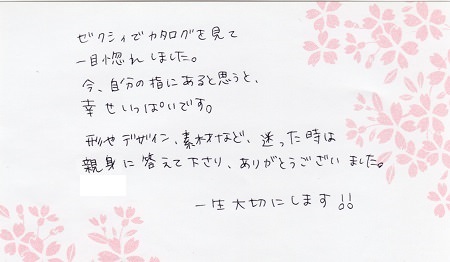 ゼクシィでカタログを見て
一目惚れしました。
今、自分の指にあると思うと、
幸せいっぱいです。
形やデザイン、素材など、迷った時は
親身に答えて下さり、ありがとうございました。
一生大切にします!!